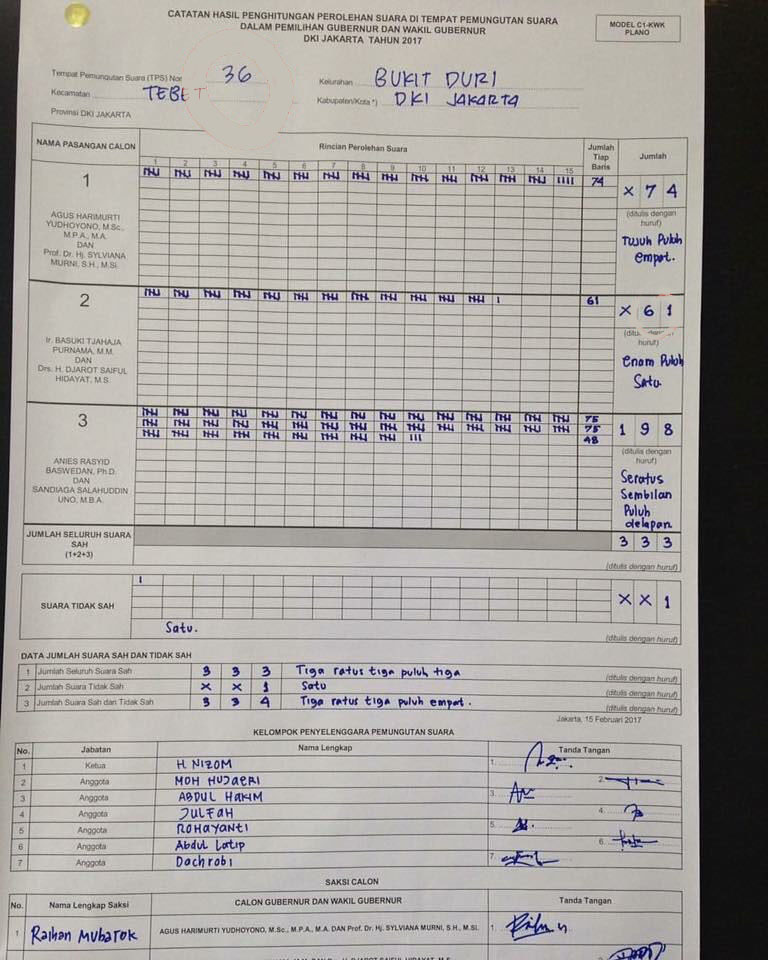 CATATAN HASIL PENGHITUNGAN PEROLEHAN SUARA DI TEMPAT PEMUNGUTAN SUARA
DALAM PEMILIHAN GUBERNUR DAN WAKIL GUBERNUR
DKI JAKARTA TAHUN 2017
MODEL C1-KWK
PLANO
Tempat Pemungutan Suara (TPS) Nomor 36 Kelurahan BUKIT DURI
Kecamatan TEBET Kabupaten/Kota *) DKI JAKARTA
Provinsi DKI JAKARTA
NAMA PASANGAN CALON Rincian Perolehan Suara Jumlah Tiap Baris Jumlah
1 2 3 4 5 6 7 8 9 10 11 12 13 14 15
1 74 X 7 4
AGUS HARIMURTI
YUDHOYONO, M.Sc.,
M.P.A., M.A.
DAN
Prof. Dr. Hj. SYLVIANA
MURNI, S.H., M.Si.
(ditulis dengan
huruf)
Tujuh Puluh
empat.
2 61 X 6 1
Ir. BASUKI TJAHAJA
PURNAMA, M.M.
DAN
Drs. H. DJAROT SAIFUL
HIDAYAT, M.S.
huruf)
enam Puluh
Satu
3 75 1 9 8
75
48
ANIES RASYID
BASWEDAN, Ph.D.
DAN
SANDIAGA SALAHUDDIN
UNO, M.B.A.
(ditulis dengan
huruf)
Seratus
Sembilan
Puluh
delapan
JUMLAH SELURUH SUARA
SAH
(1+2+3)
3 3 3
(ditulis dengan huruf)
SUARA TIDAK SAH X X 1
Satu.
(ditulis dengan huruf)
DATA JUMLAH SUARA SAH DAN TIDAK SAH
1 Jumlah Seluruh Suara Sah 3 3 3 Tiga ratus tiga puluh tiga (ditulis dengan huruf)
2 Jumlah Suara Tidak Sah X X 1 Satu (ditulis dengan huruf)
3 Jumlah Suara Sah dan Tidak Sah 3 3 4 Tiga ratus tiga puluh empat. (ditulis dengan huruf)
Jakarta, 15 Februari 2017
KELOMPOK PENYELENGGARA PEMUNGUTAN SUARA
No. Jabatan Nama Lengkap Tanda Tangan
1 Ketua H. NIZOM 1.
2 Anggota MOH HUJAERI 2.
3 Anggota ABDUL HAKIM 3.
4 Anggota JULFAH 4.
5 Anggota ROHAYANTI 5.
6 Anggota Abdul Latip 6.
7 Anggota Dachrobi 7.
SAKSI CALON
No. Nama Lengkap Saksi CALON GUBERNUR DAN WAKIL GUBERNUR Tanda Tangan
1 Raihan Mubarok AGUS HARIMURTI YUDHOYONO, M.Sc., M.P.A., M.A. DAN Prof. Dr. Hj. SYLVIANA MURNI, S.H., M.Si. 1.